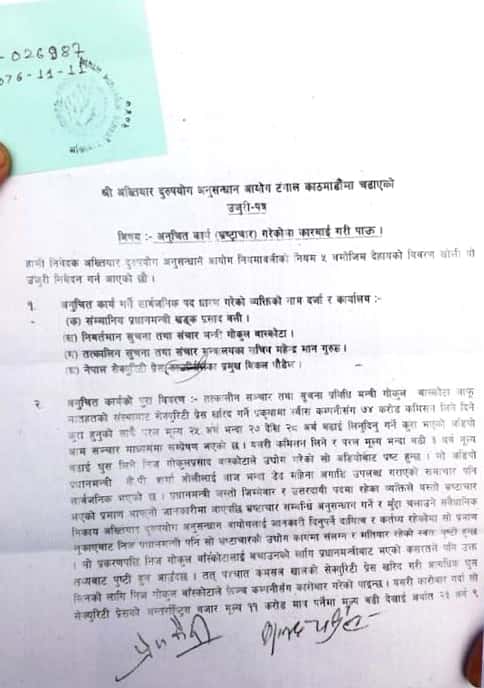 -026987
076-11-11
श्री अख्तियार दुरुपयोग अनुसन्धान आयोग टंगाल काठमाडौंमा चढाएको
उजुरी-पत्र
विषय :- अनुचित कार्य (भ्रष्टाचार) गरेकोमा कारवाई गरी पाऊ ।
हामी निवेदक अख्तियार दुरुपयोग अनुसन्धान आयोग नियमावलीको नियम ५ बमोजिम देहायको विवरण खोली यो
उजुरी निवेदन गर्न आएको छौं ।
१. अनुचित कार्य गर्ने सार्वजनिक पद धारण गरेको व्यक्तिको नाम दर्जा र कार्यालय :-
(क) सम्मानिय प्रधानमन्त्री खड्ग प्रसाद वली ।
(ख) निवर्तमान सुचना तथा संचार मन्त्री गोकुल बास्कोटा ।
(ग) तत्कालिन सुचना तथा संचार मन्त्रालयका सचिव महेन्द्र मान गुरुङ ।
(घ) नेपाल सेक्युरिटी प्रेस प्रमुख विकल पौडेल ।
२. अनुचित कार्यको पुरा विवरण :- तत्कालीन संचार तथा सुचना प्रविधि मन्त्री गोकुल बास्कोटा आफू
मातहतको संस्थाबाट सेक्युरिटी प्रेस खरिद गर्ने प्रकृयामा स्वीस कम्पनीसंग ७४ करोड कमिसन लिने दिने
कुरा हुनुको साथै परल मूल्य २५ अर्ब भन्दा २७ देखि २८ अर्ब बढाई लिनुदिनु गर्ने कुरा भएको अडियो
आम सञ्चार माध्यममा सम्प्रेषण भएको छ । यसरी कमिसन लिने र परल मूल्य भन्दा बढी ३ अर्ब मूल्य
बढाई घुस लिने निज गोकुलप्रसाद बास्कोटाले उद्योग गरेको सो अडियोबाट पष्ट हुन्छ । सो अडियो
प्रधानमन्त्री के.पी शर्मा ओलीलाई आज भन्दा डेढ महिना अगाडि उपलब्ध गराएको समाचार पनि
सार्वजनिक भएको छ । प्रधानमन्त्री जस्तो जिम्मेवार र उत्तरदायी पदमा रहेका व्यक्तिले यस्तो भ्रष्टाचार
भएको प्रमाण थाहा जानकारीमा आएपछि भ्रष्टाचार सम्बन्धि अनुसन्धान गर्ने र मुद्दा चलाउने संवैधानिक
निकाय अख्तियार दुरुपयोग अनुसन्धान आयोगलाई जानकारी दिनुपर्ने दायित्व र कर्तव्य रहेकोमा सो प्रमाण
लुकाएबाट निज प्रधानमन्त्री पनि सो भ्रष्टाचारको उद्योग कार्यमा संलग्न र मतियार रहेको स्वतः पुष्टी हुन्छ
। यो प्रकरणपछि निज गोकुल बास्कोटालाई बचाउनको लागि प्रधानमन्त्रीबाट भएको कसरतले पनि उक्त
तथ्यबाट पुष्टी हुन आउँदछ । तत् पश्चात कमसल खालको सेक्युरिटी प्रेस खरिद गरी अत्यधिक घुस
लिनको लागि निज गोकुल बास्कोटाले स्विस कम्पनीसँग कारोबार गरेको पाइन्छ । यसरी कारोबार गर्दा सो
सेक्युरिटी प्रेसको अन्तर्राष्ट्रिय बजार मूल्य ११ करोड मात्र पर्नेमा मूल्य बढी देखाई अर्थात २३ अर्ब ९